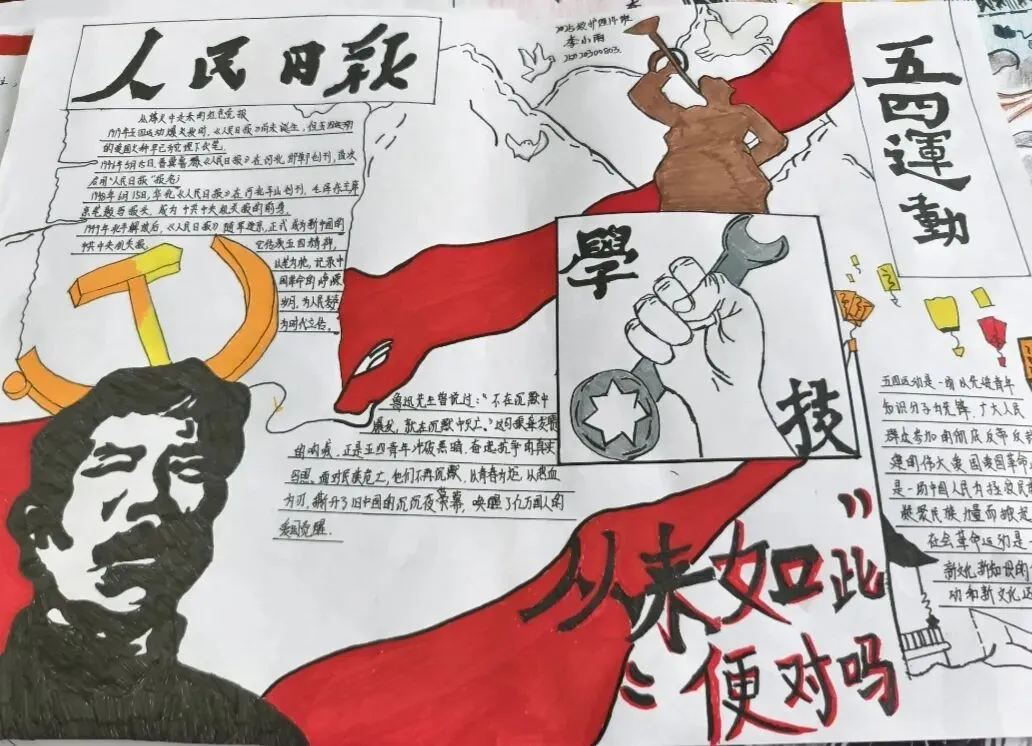 人民日报
李小雨
从烽火中走来的红色党报
1919年五四运动爆发时，《人民日报》尚未诞生，但五四运动
的爱国火种早已为它埋下伏笔。
1946年5月15日，晋冀鲁豫《人民日报》在河北邯郸创刊，首次
启用"人民日报"报名；
1948年6月15日，华北《人民日报》在河北平山创刊，毛泽东主席
亲笔题写报头，成为中共中央机关报的前身。
1949年北平解放后，《人民日报》随军进京，正式成为新中国的
中共中央机关报。 它传承五四精神，
以笔为枪，记录中
国革命的峥嵘
岁月，为人民发声
为时代立传。
五四運動
學
技
鲁迅先生曾说过："不在沉默中
爆发，就在沉默中灭亡。"这句振聋发聩
的呐喊，正是五四青年冲破黑暗、奋起抗争的真实
写照。面对民族危亡，他们不再沉默，以青春为炬，以热血
为刃，撕开了旧中国的沉沉夜幕，唤醒了亿万国人的
爱国觉醒。
五四运动是一场以先进青年
知识分子为先锋、广大人民
群众参加的彻底反帝反封
建的伟大爱国革命
是一场中国人民为拯救民族
凝聚民族力量而掀起
社会革命运动是一
新文化新知识的
动和新文化运
从来如此"
"便对吗